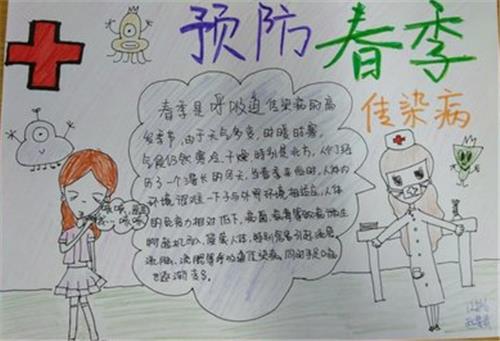 预防春季
传染病
春季是呼吸道传染病的高
发季节,由于天气多变,时暖时寒,
气候仍然寒冷、干燥特别是北方,人们经
历了一个漫长的冬天,当春季来临时,人体内
环境很难一下子与外界环境相适应,人体
的免疫力相对低下,
时趁机而入,侵袭人体,特别容易引起流感、
流脑、流腮等呼吸道传染病,同时手足口病
也逐渐增多。
咳咳,